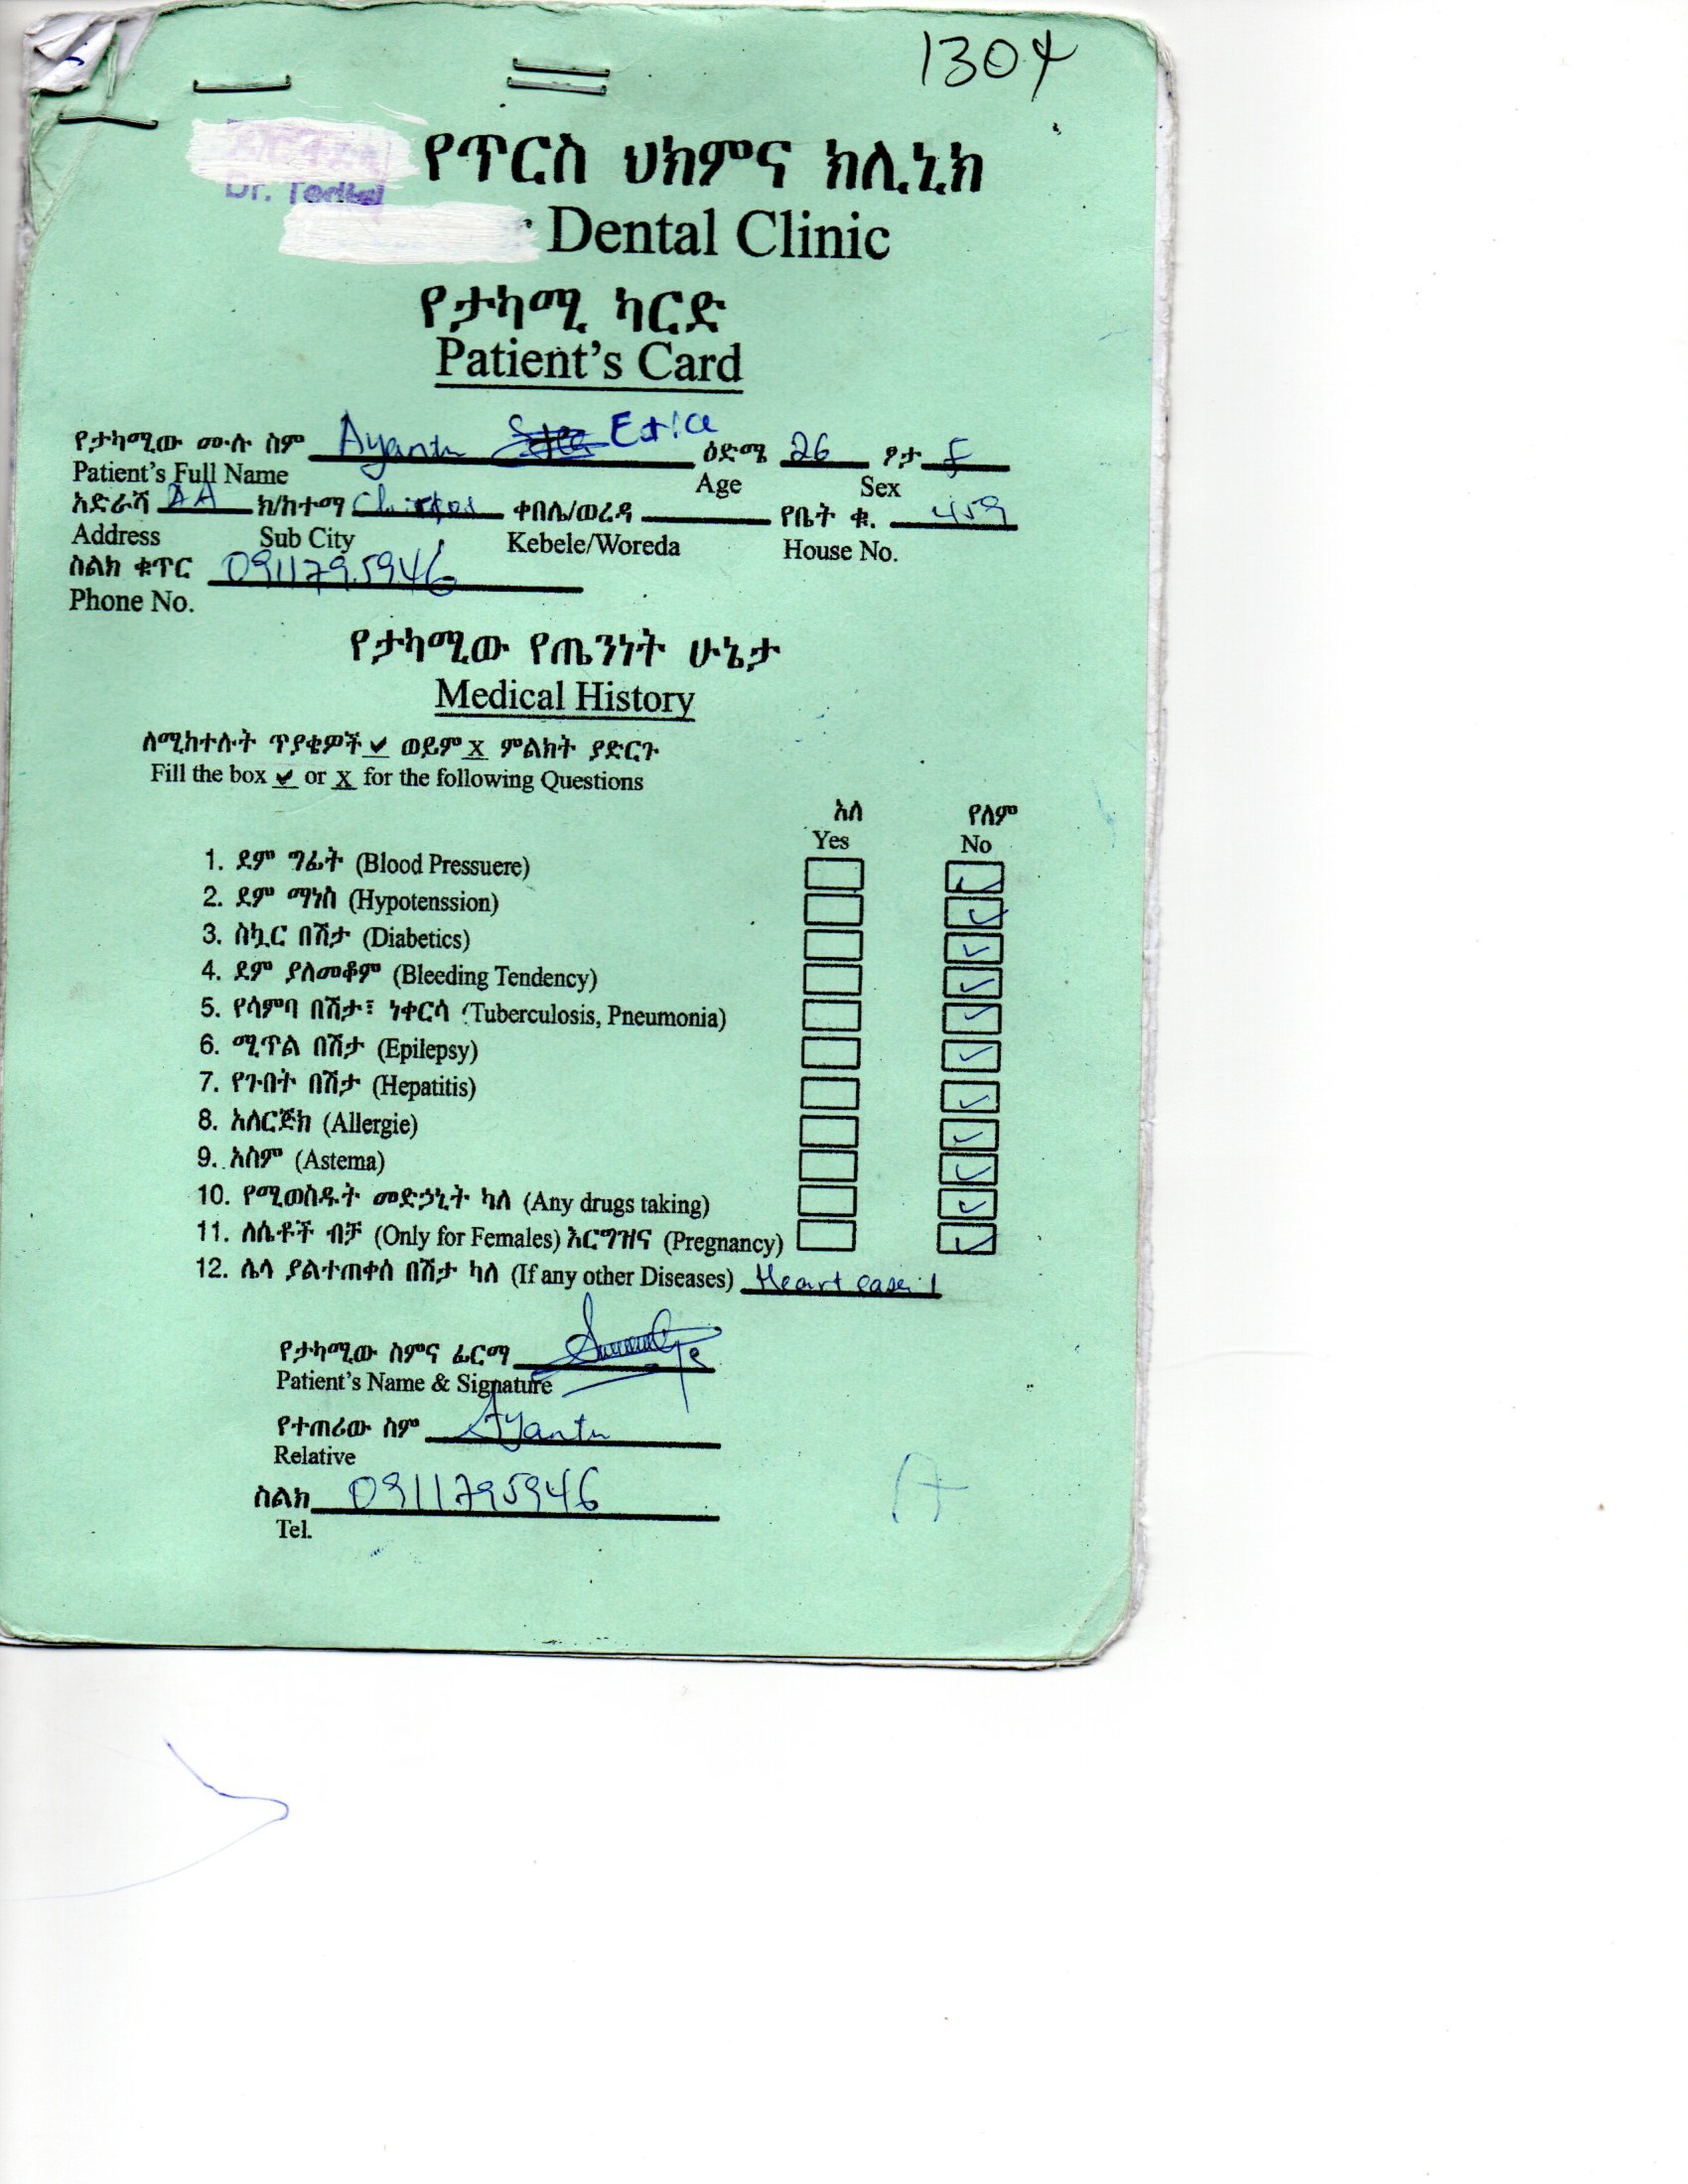 1304
የጥርስ ህክምና ክሊኒክ
Dr.
Dental Clinic
የታካሚ ካርድ
Patient's Card
የታካሚው ሙሉ ስም Ayantu ዕድሜ 26 ፆታ F
Patient's Full Name Age Sex
አድራሻ AA ክ/ከተማ ቀበሌ/ወረዳ የቤት ቁ. 459
Address Sub City Kebele/Woreda House No.
ስልክ ቁጥር 0911795946
Phone No.
የታካሚው የጤንነት ሁኔታ
Medical History
ለሚከተሉት ጥያቄዎች ✔ ወይም x ምልክት ያድርጉ
Fill the box ✔ or X for the following Questions
አለ የለም
Yes No
1. ደም ግፊት (Blood Pressuere) ✓
2. ደም ማነስ (Hypotenssion) ✓
3. ስኳር በሽታ (Diabetics) ✓
4. ደም ያለመቆም (Bleeding Tendency) ✓
5. የሳምባ በሽታ፣ ነቀርሳ (Tuberculosis, Pneumonia) ✓
6. ሚጥል በሽታ (Epilepsy) ✓
7. የጉበት በሽታ (Hepatitis) ✓
8. አለርጅክ (Allergie) ✓
9. አስም (Astema) ✓
10. የሚወስዱት መድኃኒት ካለ (Any drugs taking) ✓
11. ለሴቶች ብቻ (Only for Females) እርግዝና (Pregnancy) ✓
12. ሌላ ያልተጠቀሰ በሽታ ካለ (If any other Diseases) Heart case
የታካሚው ስምና ፊርማ
Patient's Name & Signature
የተጠሪው ስም Ayantu
Relative
ስልክ 0911795946
Tel.
A